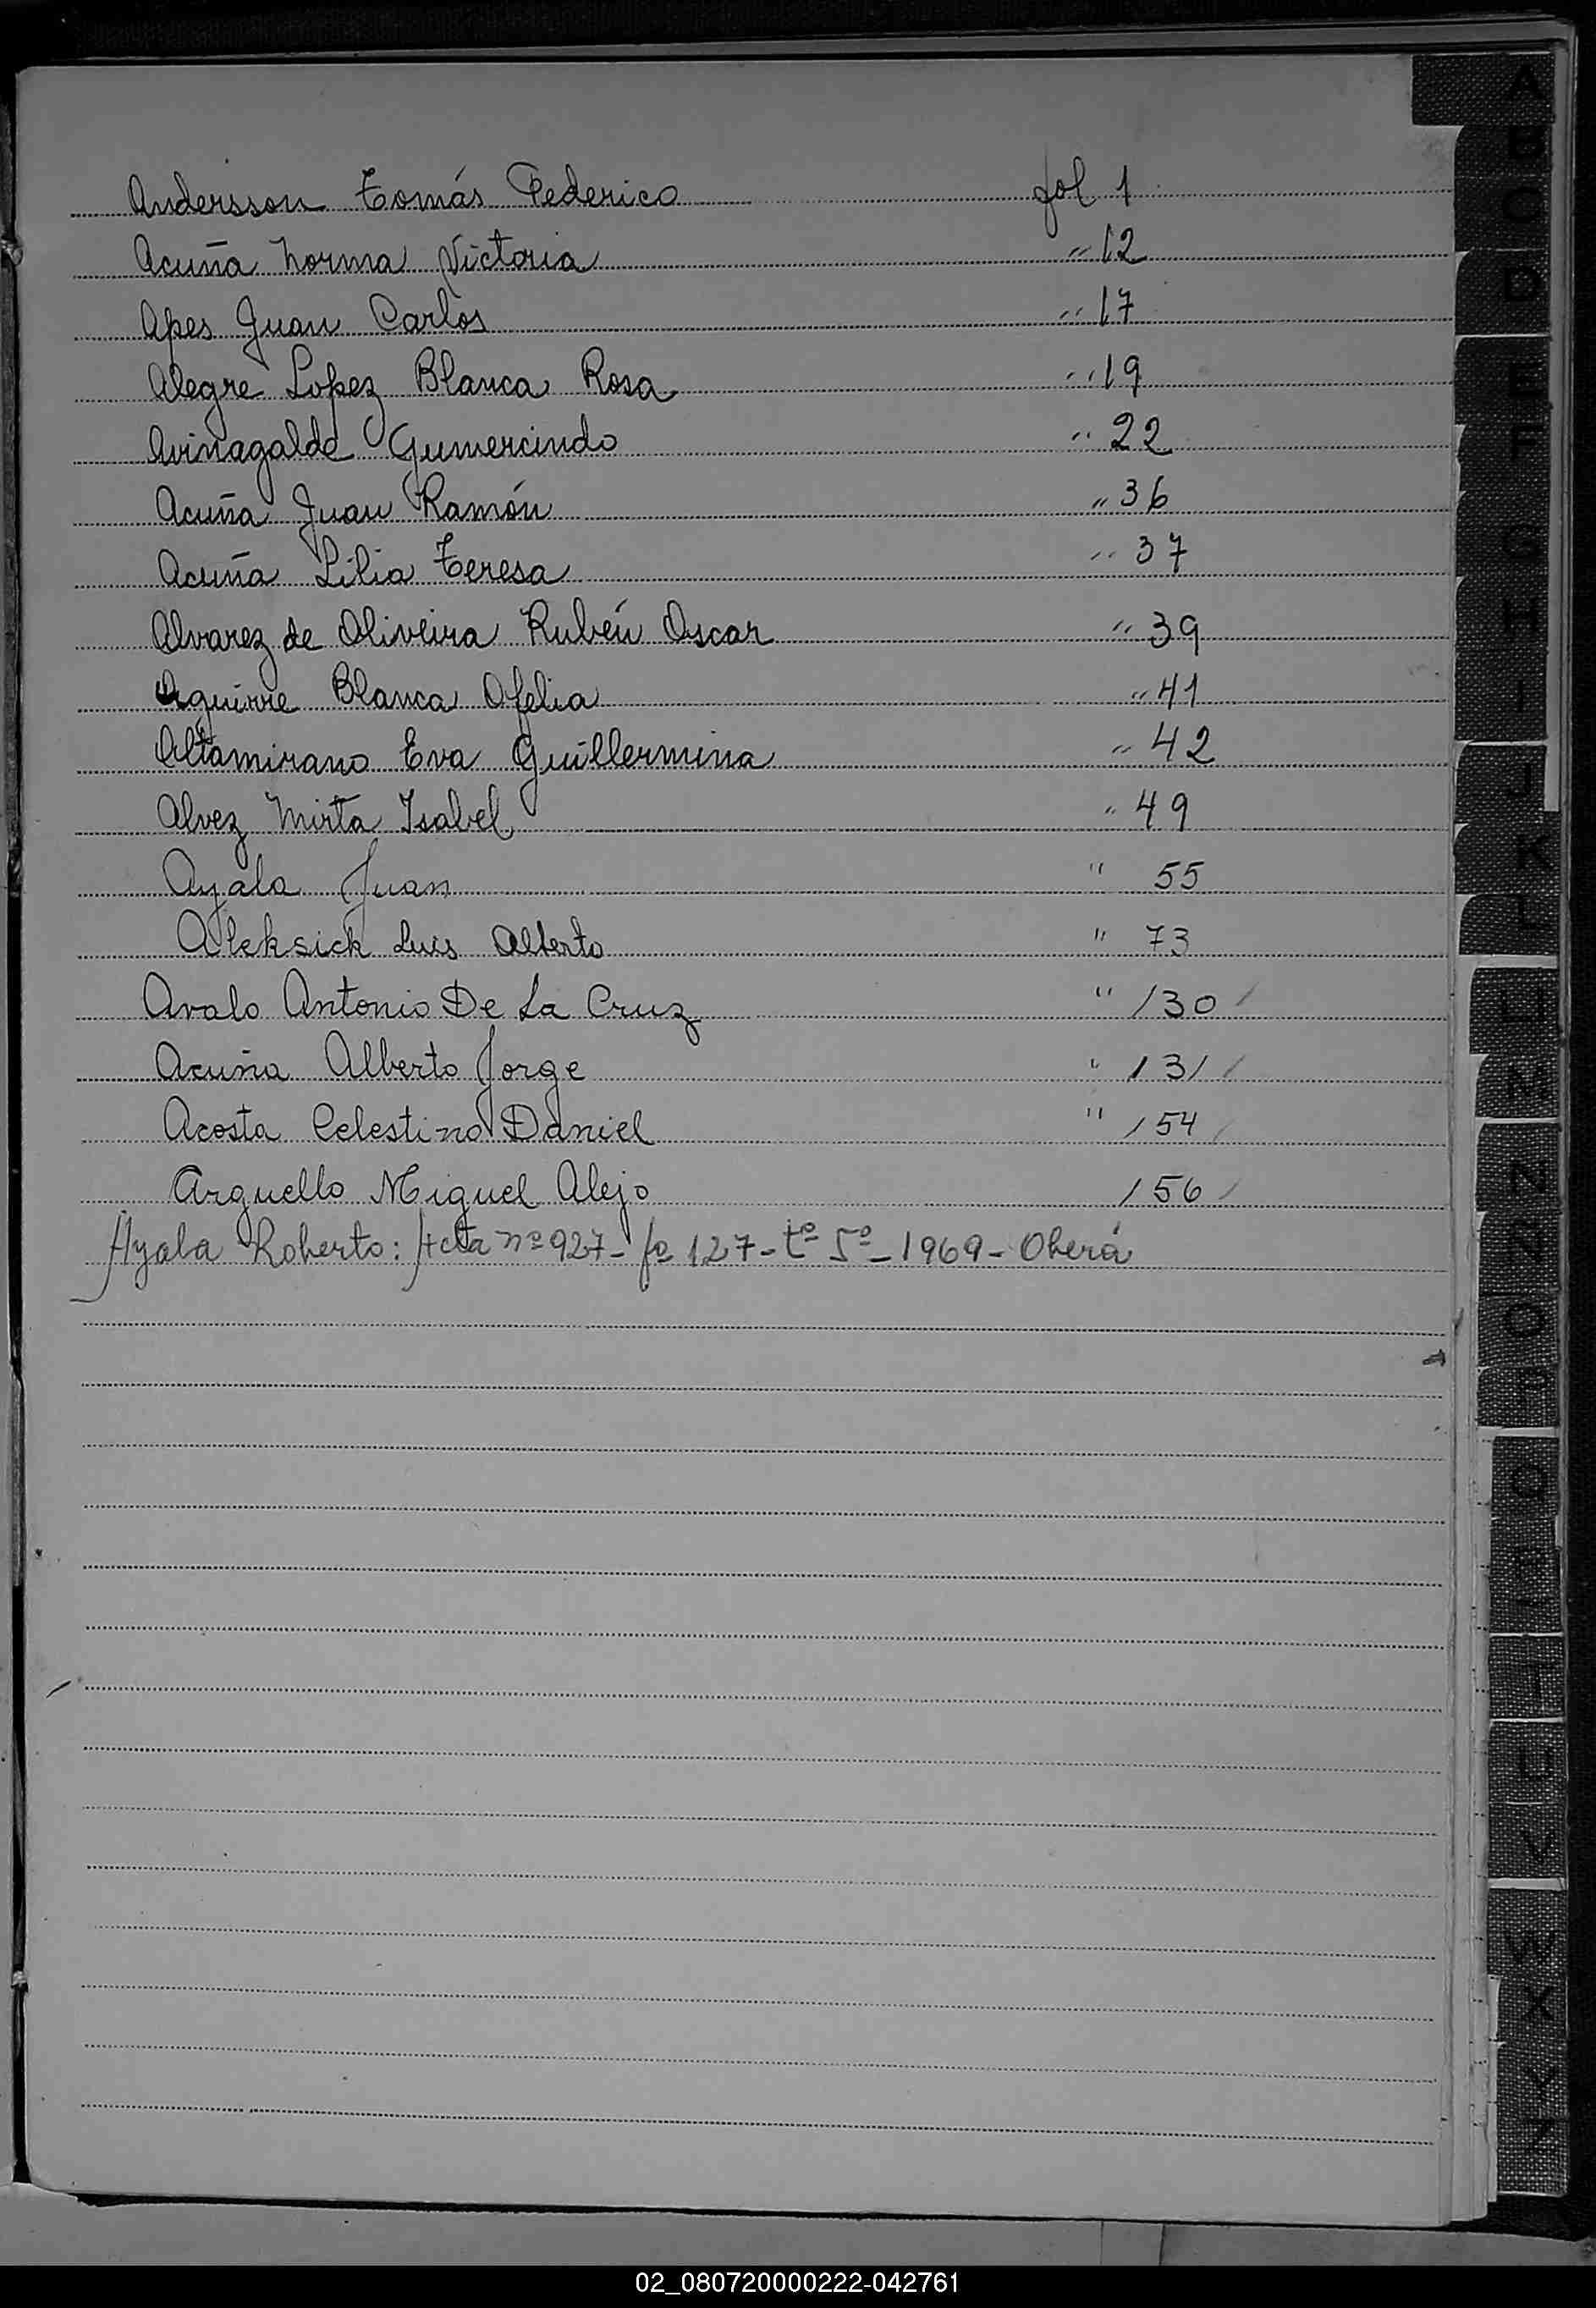 Andersson Tomás Federico fol 1
Acuña Norma Victoria " 12
Apes Juan Carlos " 17
Alegre Lopez Blanca Rosa " 19
Avinagalde Gumercindo " 22
Acuña Juan Ramón " 36
Acuña Lilia Teresa " 37
Alvarez de Oliveira Rubén Oscar " 39
Aguirre Blanca Ofelia " 41
Altamirano Eva Guillermina " 42
Alvez Mirta Isabel " 49
Ayala Juan " 55
Aleksick Luis Alberto " 73
Avalo Antonio De La Cruz " 130
Acuña Alberto Jorge " 131
Acosta Celestino Daniel " 154
Arguello Miguel Alejo 156
Ayala Roberto: Acta nº 927 - fº 127 - tº 5º - 1969 - Oberá
A
B
C
D
E
F
G
H
I
J
K
L
LL
M
N
Ñ
O
P
Q
R
T
U
V
W
X
Y
Z
02_080720000222-042761